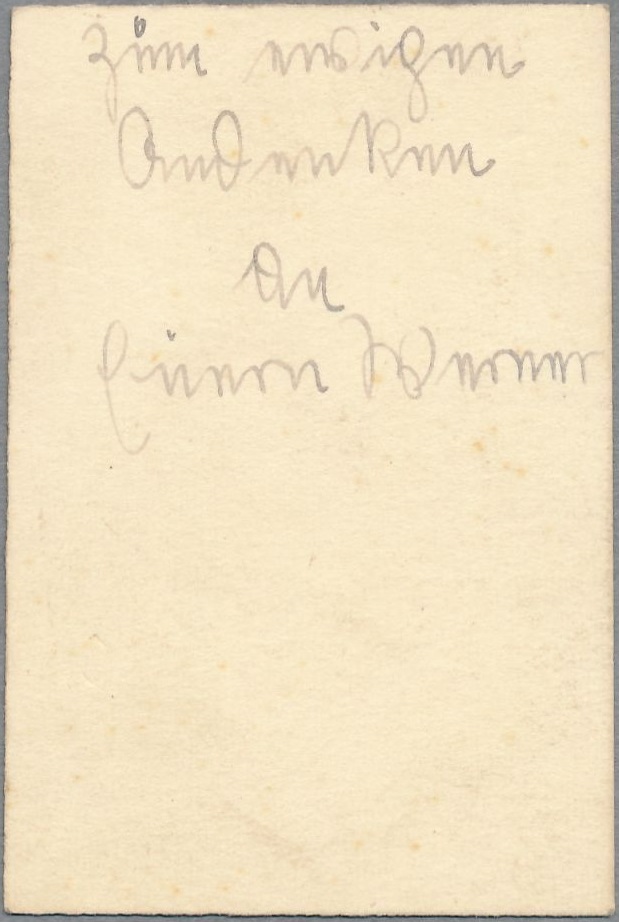 Zum ewigen
Andenken
An
Euern Werner